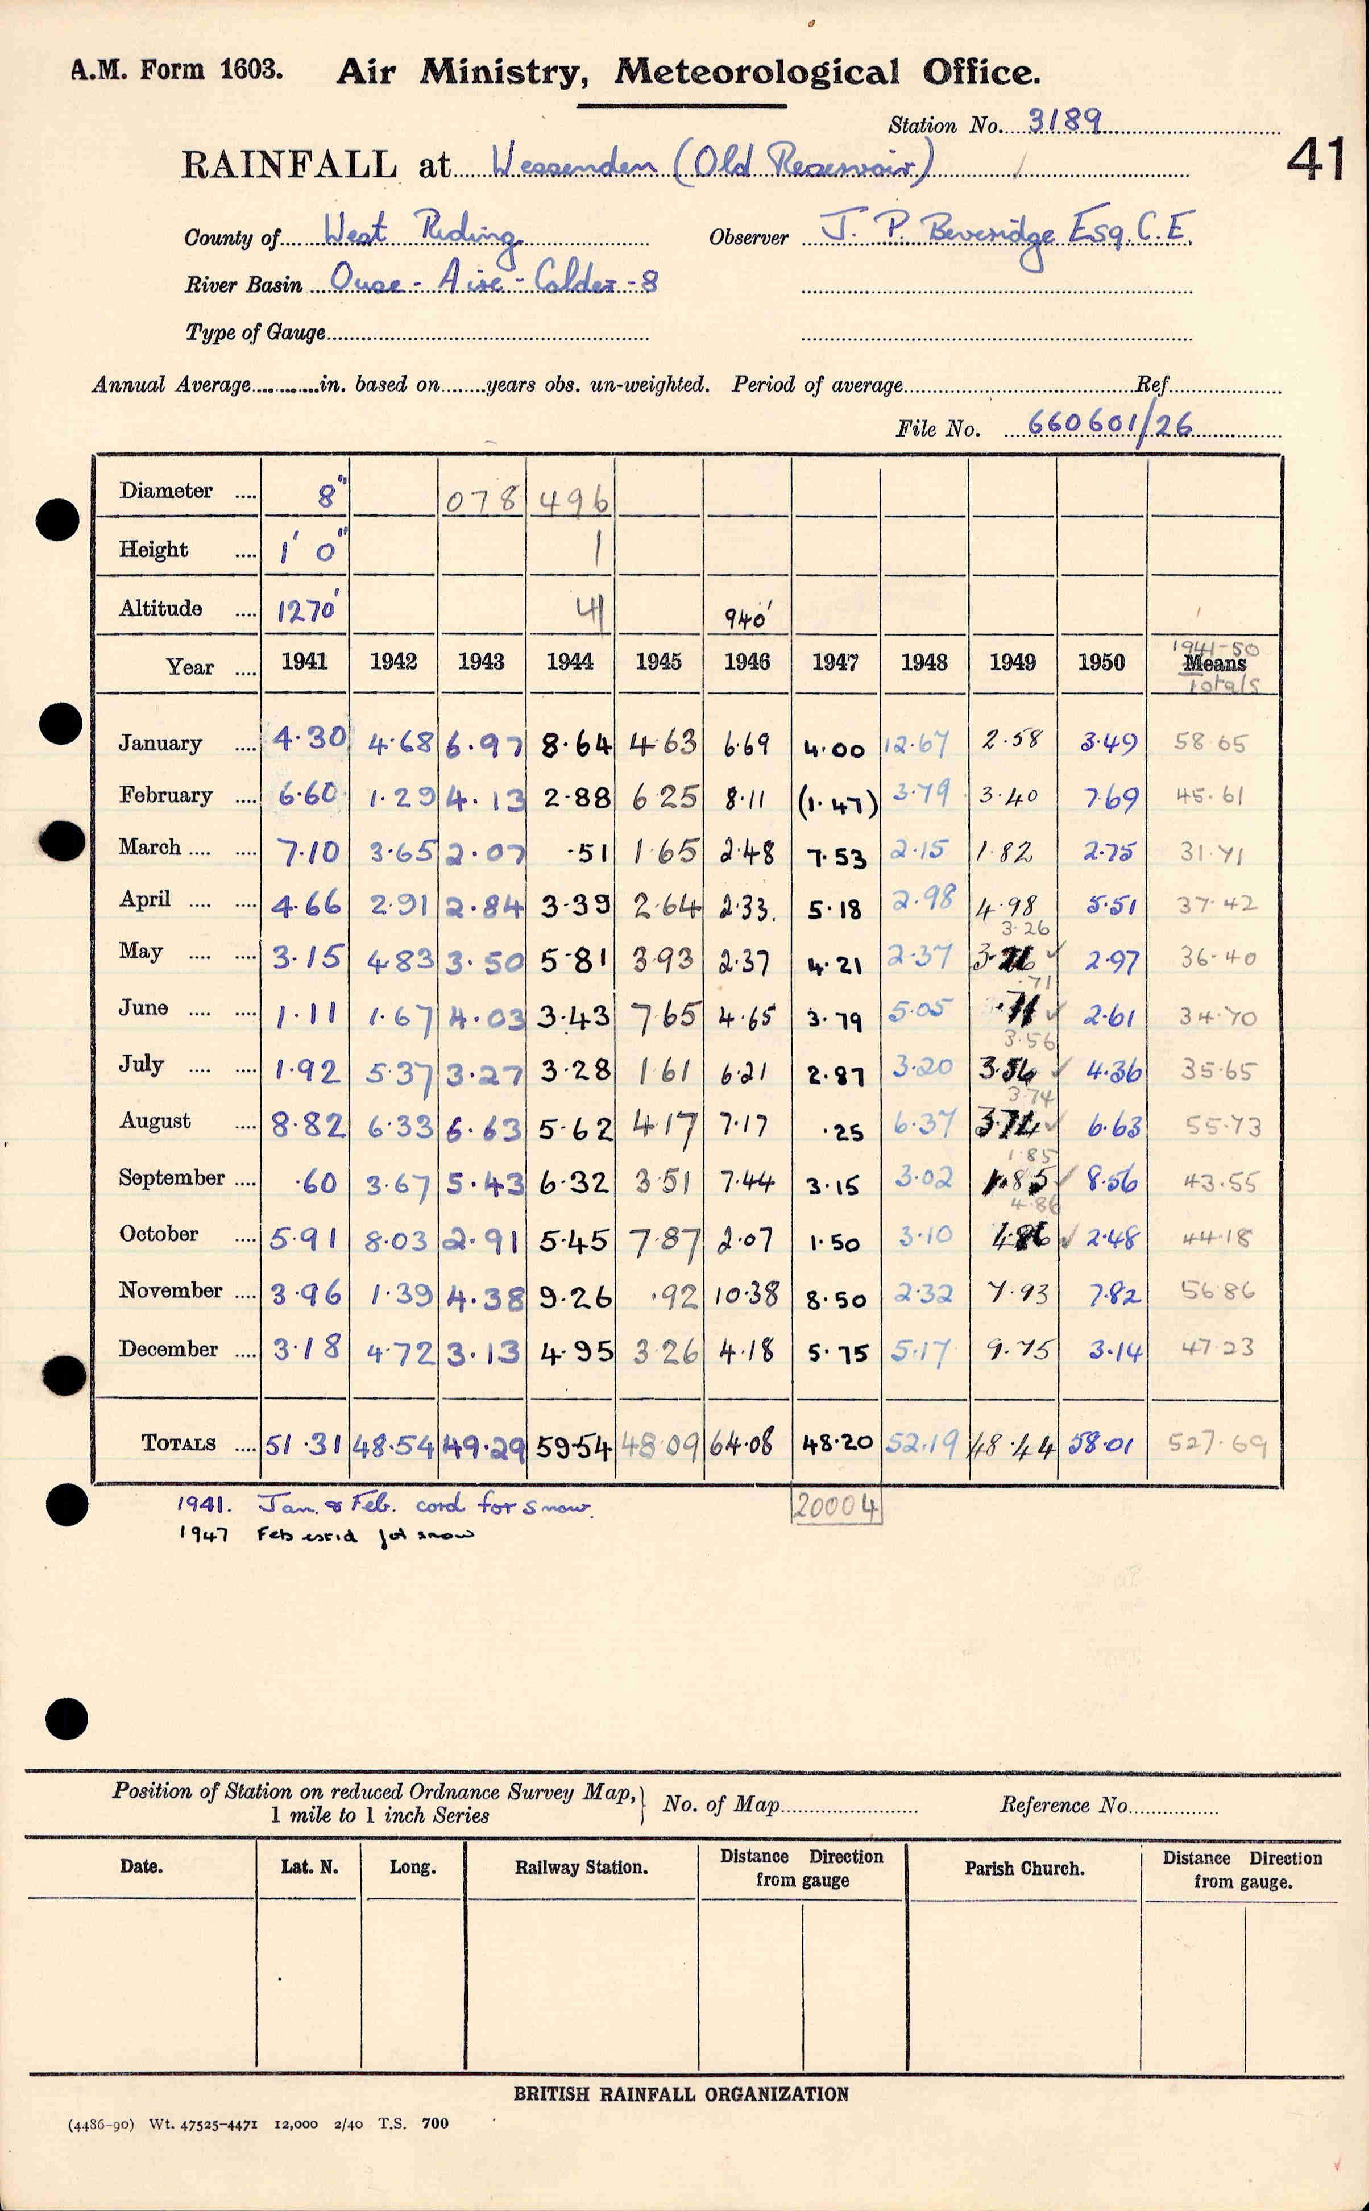 A.M. Form 1603. Air Ministry, Meteorological Office.
Station No. 3189
41
RAINFALL at Wessenden (Old Reservoir)
County of West Riding Observer J. P. Beveridge Esq. C.E.
River Basin Ouse - Aire - Calder - 8
Type of Gauge
Annual Average in. based on years obs. un-weighted. Period of average Ref
File No. 660601/26
Diameter 8" 078 496
Height 1' 0" 1
Altitude 1270' 41 940'
Year 1941 1942 1943 1944 1945 1946 1947 1948 1949 1950 1941-50 Means Totals
January 4.30 4.68 6.97 8.64 4.63 6.69 4.00 12.67 2.58 3.49 58.65
February 6.60 1.29 4.13 2.88 6.25 8.11 (1.47) 3.79 3.40 7.69 45.61
March 7.10 3.65 2.07 .51 1.65 2.48 7.53 2.15 1.82 2.75 31.71
April 4.66 2.91 2.84 3.39 2.64 2.33 5.18 2.98 4.98 5.51 37.42
3.26
May 3.15 4.83 3.50 5.81 3.93 2.37 4.21 2.37 3.26 ✓ 2.97 36.40
.71
June 1.11 1.67 4.03 3.43 7.65 4.65 3.79 5.05 .71 ✓ 2.61 34.70
3.56
July 1.92 5.37 3.27 3.28 1.61 6.21 2.87 3.20 3.56 ✓ 4.36 35.65
3.74
August 8.82 6.33 6.63 5.62 4.17 7.17 .25 6.37 3.74 ✓ 6.63 55.73
1.85
September .60 3.67 5.43 6.32 3.51 7.44 3.15 3.02 1.85 ✓ 8.56 43.55
4.86
October 5.91 8.03 2.91 5.45 7.87 2.07 1.50 3.10 4.86 ✓ 2.48 44.18
November 3.96 1.39 4.38 9.26 .92 10.38 8.50 2.32 7.93 7.82 56.86
December 3.18 4.72 3.13 4.95 3.26 4.18 5.75 5.17 9.75 3.14 47.23
TOTALS 51.31 48.54 49.29 59.54 48.09 64.08 48.20 52.19 48.44 58.01 527.69
1941. Jan. & Feb. cord for snow. 20004
1947 Feb estd for snow
Position of Station on reduced Ordnance Survey Map, 1 mile to 1 inch Series } No. of Map Reference No.
Date. Lat. N. Long. Railway Station. Distance Direction from gauge Parish Church. Distance Direction from gauge.
BRITISH RAINFALL ORGANIZATION
(4486-90) Wt. 47525-4471 12,000 2/40 T.S. 700